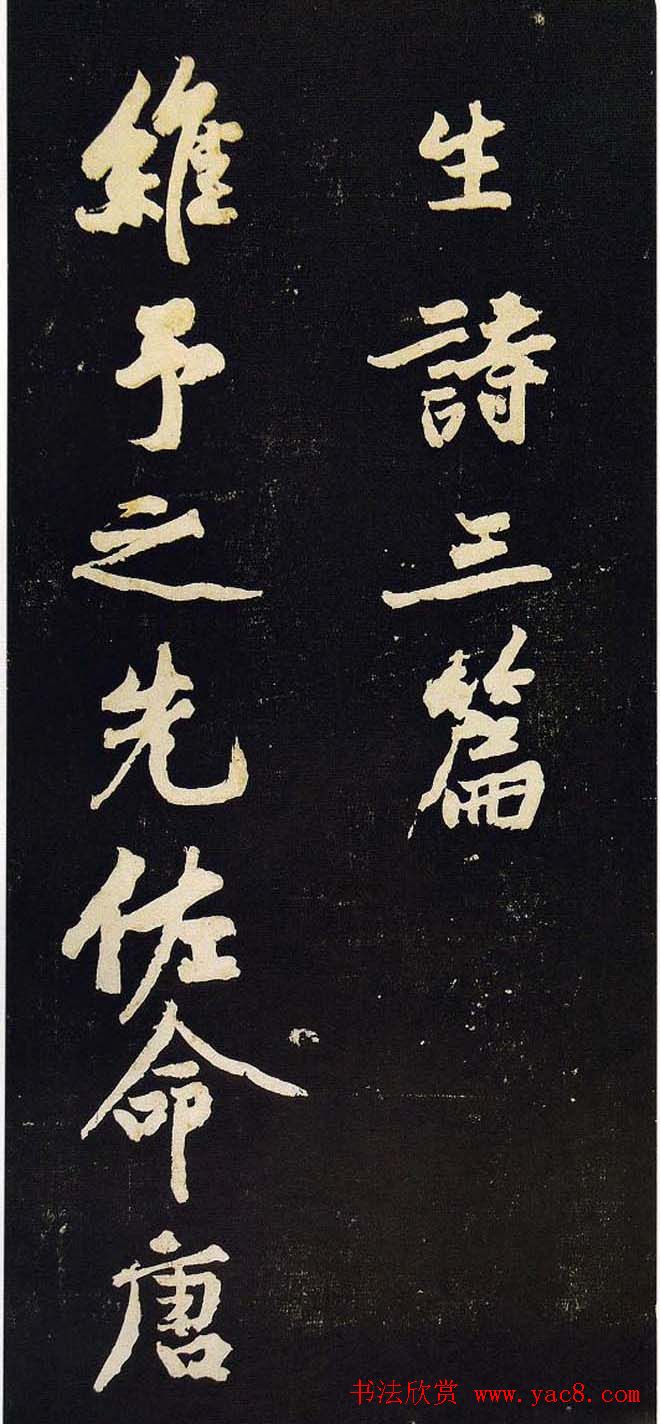 生詩三篇
維予之先佐命唐
书法欣赏 www.yac8.com